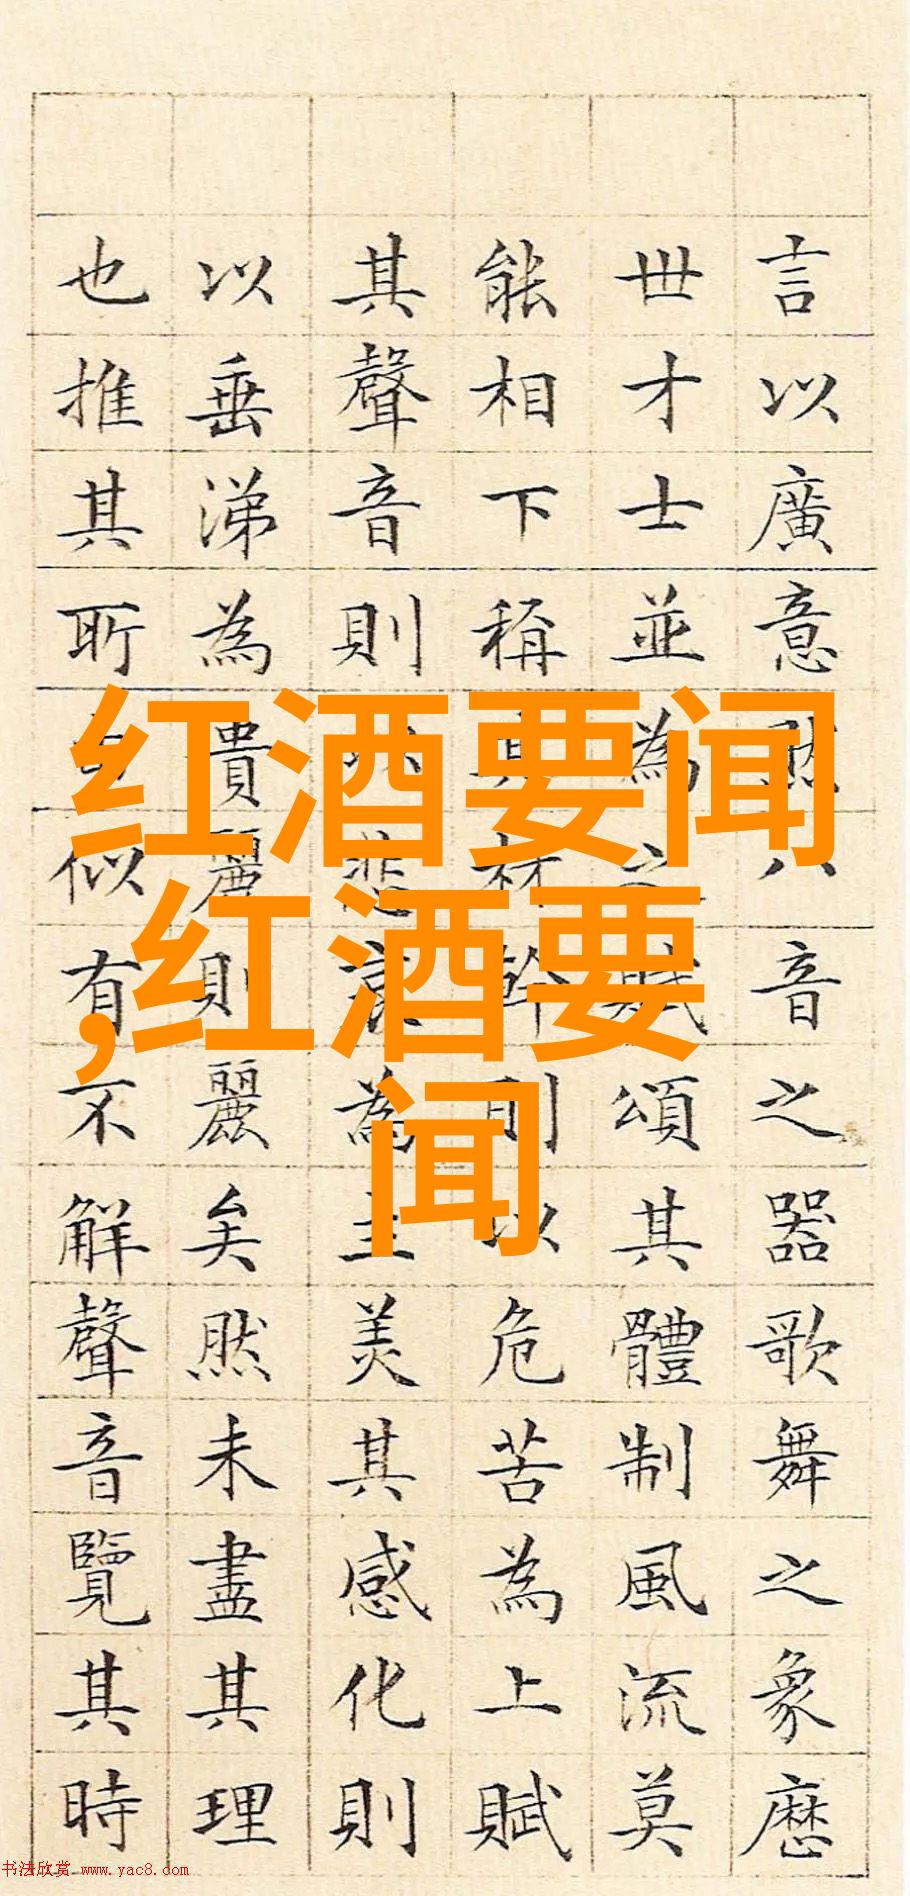 言以廣意然八音之器歌舞之象歷
世才士並為之賦頌其體制風流莫
能相下稱其材幹則以危苦為上賦
其聲音則以悲哀為主美其感化則
以垂涕為貴麗則麗矣然未盡其理
也推其所似有不解聲音覽其時
红酒要闻
,红酒要
闻
书法欣赏 www.yac8.com